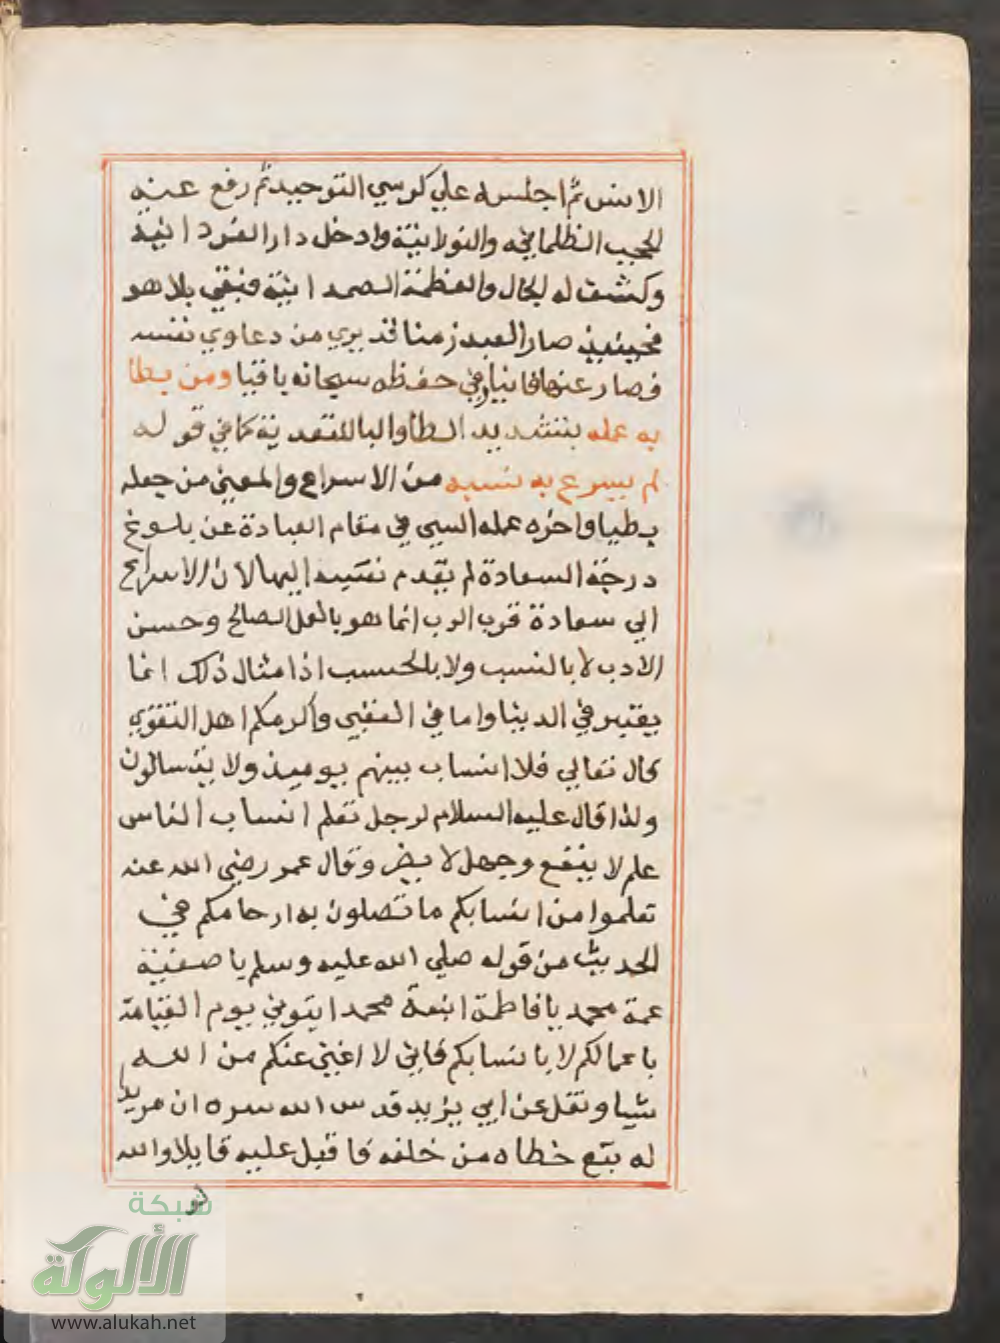 الانس ثم اجلسه علي كرسي التوحيد ثم رفع عنه
الحجب الظلمانيه والنورانية وادخل دار الفردانية
وكشف له الجمال والعظمة الصمدانية فبقي بلا هو
فحينيذ صار العبد زمنا فبري من دعاوي نفسه
فصار عنها فانيا وفي حفظه سبحانه باقيا ومن بطا
به عمله بتشديد الطا والبا للتعدية كما في قوله
لم يسرع به نسبه من الاسراع والمعني من جعله
بطيا واخره عمله السيي في مقام العبادة عن بلوغ
درجة السعادة لم يقدم نفسه اليها لان الاسراع
الي سعادة قرب الرب انما هو بالعمل الصالح وحسن
الادب لا بالنسب ولا بالحسب اذ امثال ذلك انما
يعتبر في الدنيا واما في العقبي واكرمكم اهل التقوي
كال تعالي فلا انساب بينهم يوميذ ولا يتسالون
ولذا قال عليه السلام لرجل تعلم انساب الناس
علم لا ينفع وجهل لا يضر وقال عمر رضي الله عنه
تعلموا من انسابكم ما تصلون به ارحامكم في
الحديث من قوله صلي الله عليه وسلم يا صفية
عمة محمد يا فاطمة ابنة محمد ايتوني يوم القيامة
باعمالكم لا بانسابكم فاني لا اغني عنكم من الله
شيا ونقل عن ابي يزيد قدس الله سره ان مريدا
له تبع خطاه من خلفه فاقبل عليه قايلا والله
لو
شبكة
الألوكة
www.alukah.net